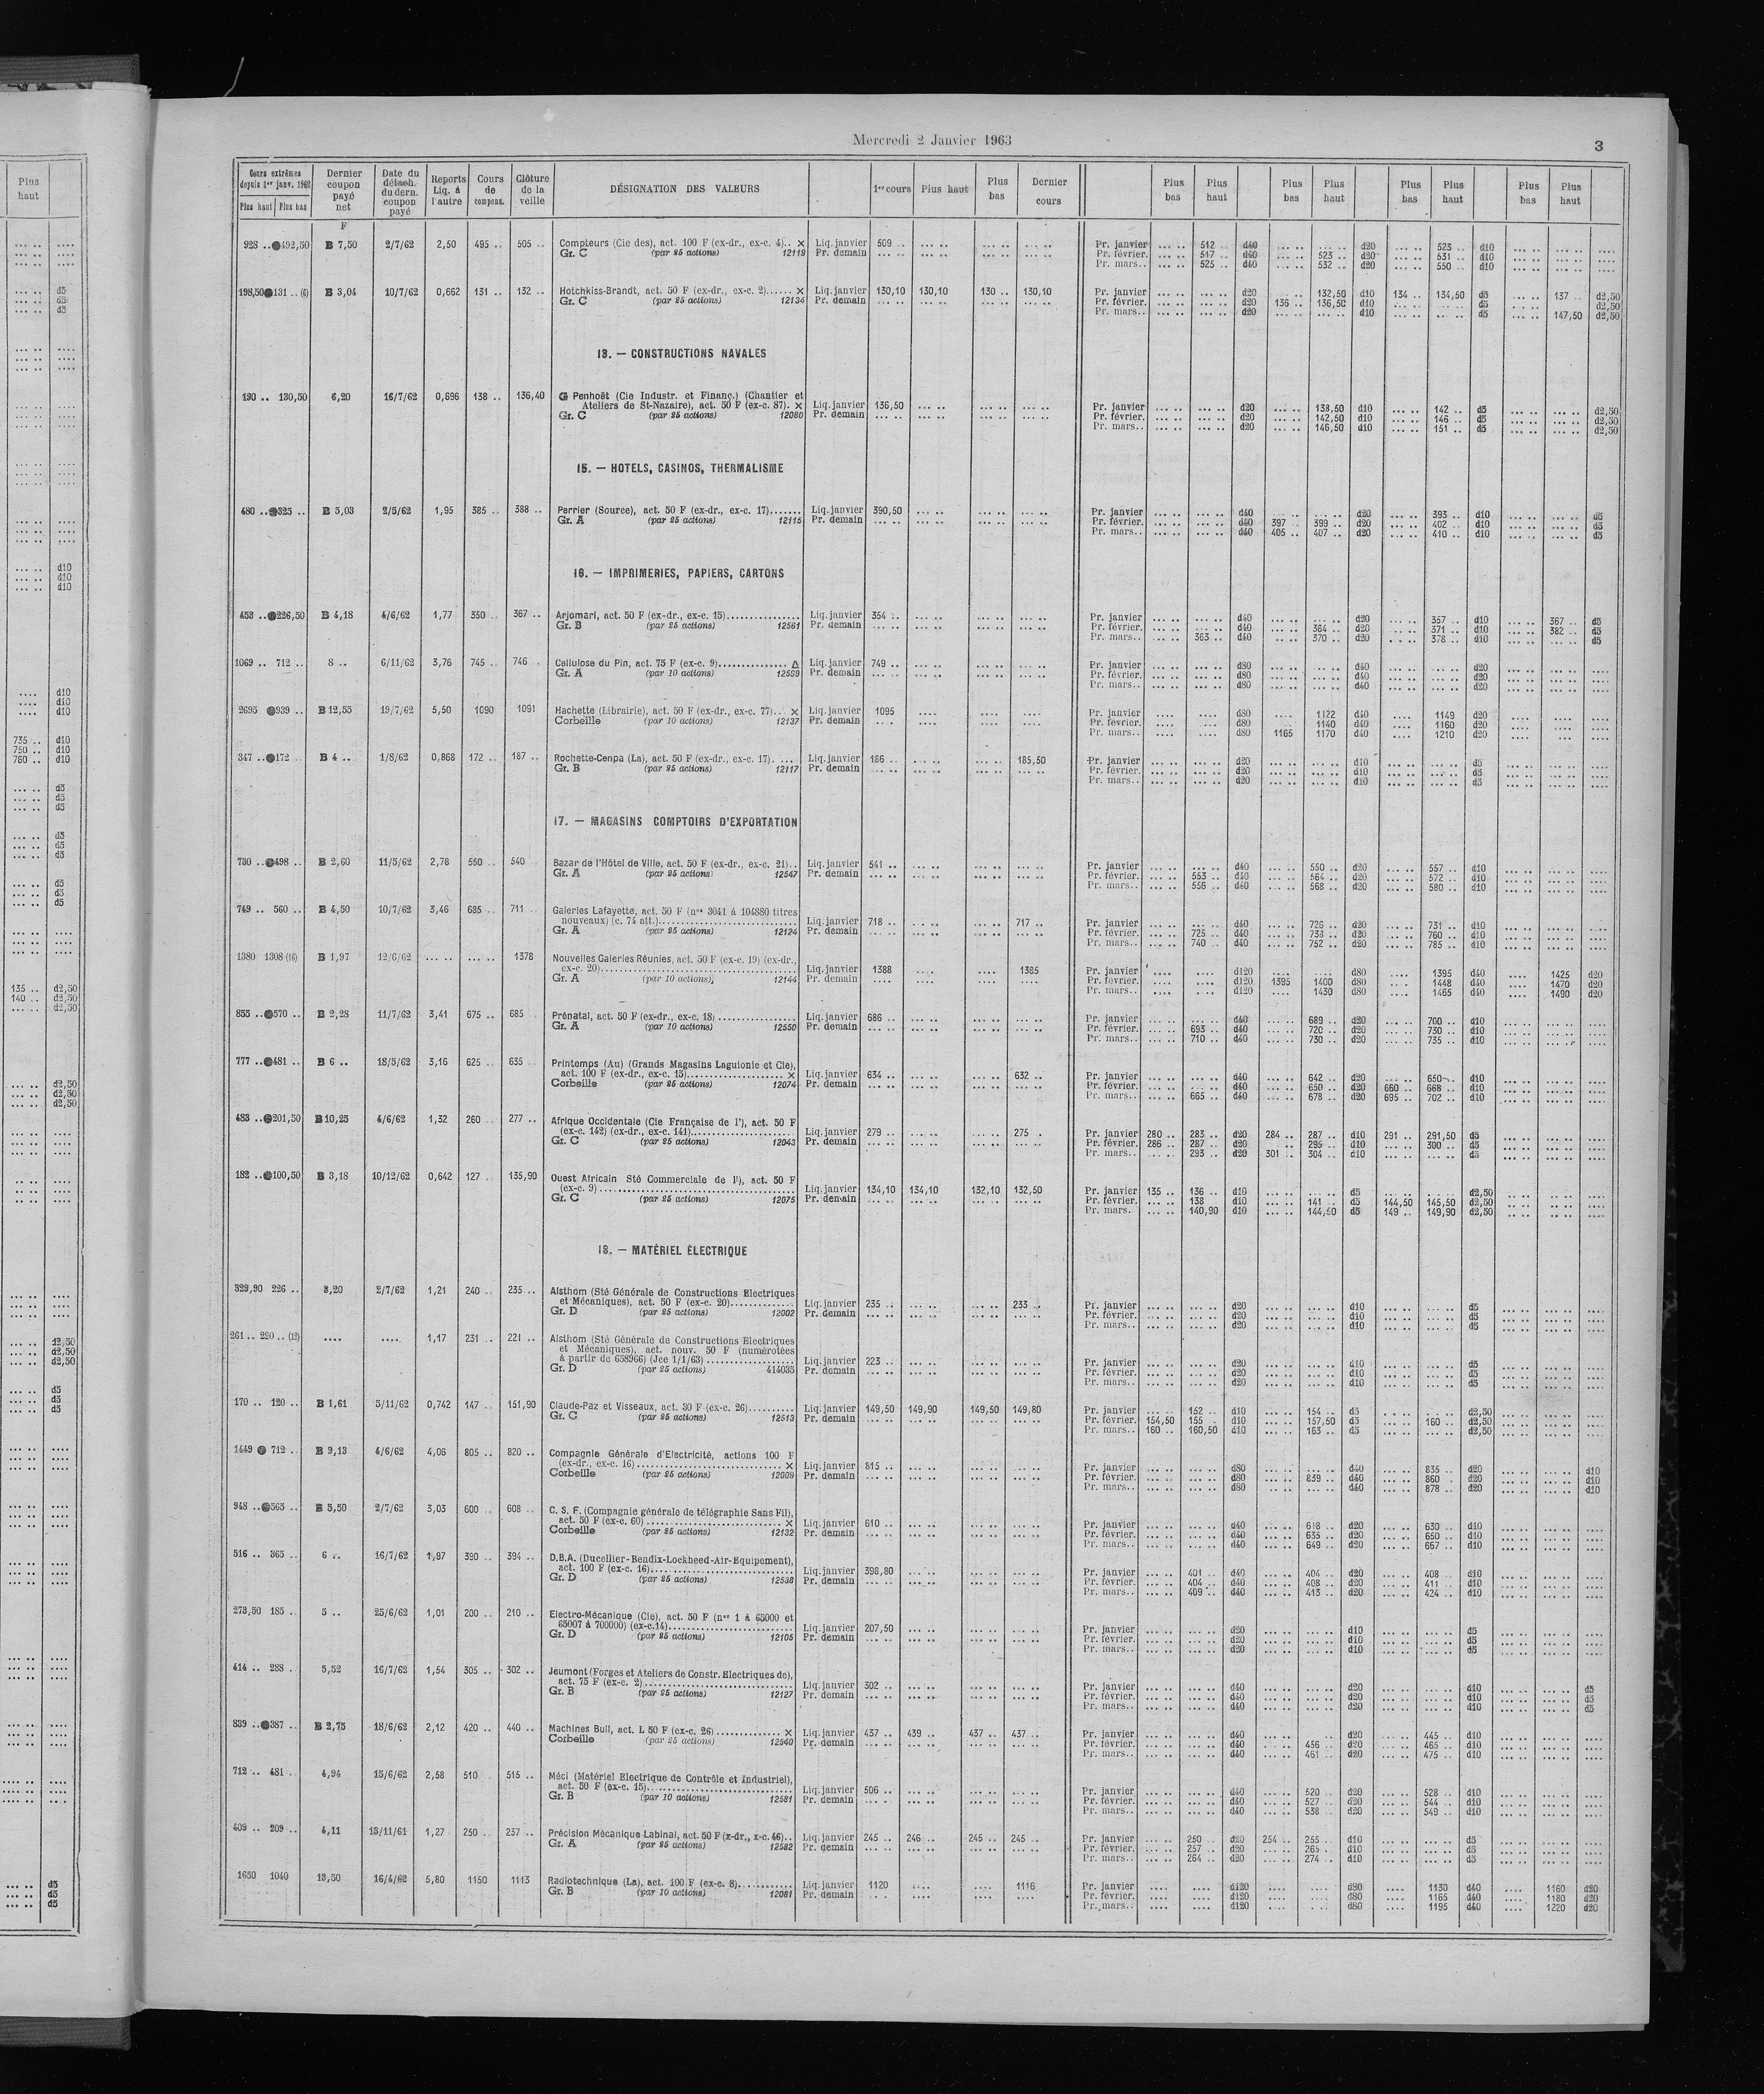 Mercredi 2 Janvier 1963
3
Cours extrêmes depuis 1er janv. 1962 Plus haut Plus bas
Dernier coupon payé net
Date du détach. du dern. coupon payé
Reports Liq. à l'autre
Cours de compens.
Clôture de la veille
DÉSIGNATION DES VALEURS
1er cours Plus haut Plus bas Dernier cours
Plus bas Plus haut Plus bas Plus haut Plus bas Plus haut Plus bas Plus haut
F
928 .. 492,50 B 7,50 2/7/62 2,50 495 .. 505 .. Compteurs (Cie des), act. 100 F (ex-dr., ex-c. 4).. × Liq. janvier 509 .. Pr. janvier 512 d40 d20 523 .. d10
Gr. C (par 25 actions) 12119 Pr. demain Pr. février. 517 .. d40 523 .. d20 531 .. d10
Pr. mars.. 525 .. d40 532 .. d20 550 .. d10
198,50 131 .. (6) B 3,04 10/7/62 0,662 131 .. 132 .. Hotchkiss-Brandt, act. 50 F (ex-dr., ex-c. 2)...... × Liq. janvier 130,10 130,10 130 .. 130,10 Pr. janvier d20 132,50 d10 134 .. 134,50 d5 137 d2,50
Gr. C (par 25 actions) 12134 Pr. demain Pr. février. d20 136 .. 136,50 d10 d5 d2,50
Pr. mars.. d20 d10 d5 147,50 d2,50
13. — CONSTRUCTIONS NAVALES
190 .. 130,50 6,20 16/7/62 0,696 138 .. 136,40 Penhoët (Cie Industr. et Financ.) (Chantier et
Ateliers de St-Nazaire), act. 50 F (ex-c. 87). × Liq. janvier 136,50 Pr. janvier d20 138,50 d10 142 .. d5 d2,50
Gr. C (par 25 actions) 12080 Pr. demain Pr. février. d20 142,50 d10 146 .. d5 d2,50
Pr. mars.. 146,50 d10 151 .. d5 d2,50
15. — HOTELS, CASINOS, THERMALISME
480 .. 325 .. B 5,03 2/5/62 1,95 385 .. 388 .. Perrier (Source), act. 50 F (ex-dr., ex-c. 17)....... Liq. janvier 390,50 Pr. janvier d40 d20 393 .. d10 d5
Gr. A (par 25 actions) 12115 Pr. demain Pr. février. d40 397 399 .. d20 402 .. d10 d5
Pr. mars.. d40 405 .. 407 .. d20 410 .. d10 d5
16. — IMPRIMERIES, PAPIERS, CARTONS
458 .. 226,50 B 4,18 4/6/62 1,77 350 .. 367 .. Arjomari, act. 50 F (ex-dr., ex-c. 15).............. Liq. janvier 354 .. Pr. janvier d40 d20 357 .. d10 367 .. d5
Gr. B (par 25 actions) 12561 Pr. demain Pr. février. d40 364 .. d20 371 .. d10 382 .. d5
Pr. mars.. 363 .. d40 370 .. d20 378 .. d10 d5
1069 .. 712 .. 8 .. 6/11/62 3,76 745 .. 746 Cellulose du Pin, act. 75 F (ex-c. 9).............. Δ Liq. janvier 749 .. Pr. janvier d80 d40 d20
Gr. A (par 10 actions) 12559 Pr. demain Pr. février. d80 d40 d20
Pr. mars.. d80 d40 d20
2695 939 .. B 12,55 19/7/62 5,50 1090 1091 Hachette (Librairie), act. 50 F (ex-dr., ex-c. 77).. × Liq. janvier 1095 Pr. janvier d80 1122 d40 1149 d20
Corbeille (par 10 actions) 12137 Pr. demain Pr. février. d80 1140 d40 1160 d20
Pr. mars.. d80 1165 1170 d40 1210 d20
347 .. 172 .. B 4 .. 1/8/62 0,868 172 .. 187 .. Rochette-Cenpa (La), act. 50 F (ex-dr., ex-c. 17). ... Liq. janvier 186 .. 185,50 Pr. janvier d20 d10 d5
Gr. B (par 25 actions) 12117 Pr. demain Pr. février. d20 d10 d5
Pr. mars.. d20 d10 d5
17. — MAGASINS COMPTOIRS D'EXPORTATION
730 .. 498 .. B 2,60 11/5/62 2,78 550 .. 540 Bazar de l'Hôtel de Ville, act. 50 F (ex-dr., ex-c. 21).. Liq. janvier 541 .. Pr. janvier d40 550 .. d20 557 .. d10
Gr. A (par 25 actions) 12547 Pr. demain Pr. février. 553 .. d40 564 .. d20 572 .. d10
Pr. mars.. 556 .. d40 568 .. d20 580 .. d10
749 .. 560 .. B 4,50 10/7/62 3,46 685 .. 711 .. Galeries Lafayette, act. 50 F (nos 3041 à 104880 titres
nouveaux) (c. 74 att.).............................. Liq. janvier 718 .. 717 .. Pr. janvier d40 726 .. d20 731 .. d10
Gr. A (par 25 actions) 12124 Pr. demain Pr. février. 725 .. d40 738 .. d20 760 .. d10
Pr. mars.. 740 .. d40 752 .. d20 785 .. d10
1380 1308 (16) B 1,97 12/6/62 1378 Nouvelles Galeries Réunies, act. 50 F (ex-c. 19) (ex-dr.,
ex-c. 20).............................. Liq. janvier 1388 1385 Pr. janvier d120 d80 1395 d40 1425 d20
Gr. A (par 10 actions) 12144 Pr. demain Pr. février. d120 1395 1400 d80 1448 d40 1470 d20
Pr. mars.. d120 1430 d80 1465 d40 1490 d20
855 .. 570 .. B 2,28 11/7/62 3,41 675 .. 685 Prénatal, act. 50 F (ex-dr., ex-c. 18) ................ Liq. janvier 686 .. Pr. janvier d40 689 .. d20 700 .. d10
Gr. A (par 10 actions) 12550 Pr. demain Pr. février. 693 .. d40 720 .. d20 730 .. d10
Pr. mars.. 710 .. d40 730 .. d20 735 .. d10
777 .. 481 .. B 6 .. 18/5/62 3,16 625 .. 635 .. Printemps (Au) (Grands Magasins Laguionie et Cie),
act. 100 F (ex-dr., ex-c. 15).................... × Liq. janvier 634 .. 632 .. Pr. janvier d40 642 .. d20 650 .. d10
Corbeille (par 25 actions) 12074 Pr. demain Pr. février. d40 650 .. d20 660 .. 668 .. d10
Pr. mars.. 665 .. d40 678 .. d20 695 .. 702 .. d10
483 .. 201,50 B 10,25 4/6/62 1,32 260 .. 277 .. Afrique Occidentale (Cie Française de l'), act. 50 F
(ex-c. 142) (ex-dr., ex-c. 141)..................... Liq. janvier 279 .. 275 .. Pr. janvier 280 .. 283 .. d20 284 .. 287 .. d10 291 .. 291,50 d5
Gr. C (par 25 actions) 12043 Pr. demain Pr. février. 286 .. 287 .. d20 295 .. d10 300 .. d5
Pr. mars.. 293 .. d20 301 .. 304 .. d10 d5
182 .. 100,50 B 3,18 10/12/62 0,642 127 .. 135,90 Ouest Africain Sté Commerciale de l'), act. 50 F
(ex-c. 9) .............................. Liq. janvier 134,10 134,10 132,10 132,50 Pr. janvier 135 .. 136 .. d10 d5 d2,50
Gr. C (par 25 actions) 12075 Pr. demain Pr. février. 138 d10 141 .. d5 144,50 145,50 d2,50
Pr. mars. 140,90 d10 144,50 d5 149 .. 149,90 d2,50
18. — MATÉRIEL ÉLECTRIQUE
329,90 226 .. 3,20 2/7/62 1,21 240 .. 235 .. Alsthom (Sté Générale de Constructions Electriques
et Mécaniques), act. 50 F (ex-c. 20)............. Liq. janvier 235 .. 233 .. Pr. janvier d20 d10 d5
Gr. D (par 25 actions) 12002 Pr. demain Pr. février. d20 d10 d5
Pr. mars.. d20 d10 d5
261 .. 220 .. (12) 1,17 231 .. 221 .. Alsthom (Sté Générale de Constructions Electriques
et Mécaniques), act. nouv. 50 F (numérotées
à partir de 658966) (Jce 1/1/63) ................. Liq. janvier 223 .. Pr. janvier d20 d10 d5
Gr. D (par 25 actions) 414035 Pr. demain Pr. février. d20 d10 d5
Pr. mars.. d20 d10 d5
170 .. 120 .. B 1,61 5/11/62 0,742 147 .. 151,90 Claude-Paz et Visseaux, act. 30 F (ex-c. 26).......... Liq. janvier 149,50 149,90 149,50 149,80 Pr. janvier 152 .. d10 154 .. d5 d2,50
Gr. C (par 25 actions) 12513 Pr. demain Pr. février. 154,50 155 . d10 157,50 d5 160 .. d2,50
Pr. mars.. 160 .. 160,50 d10 163 .. d5 d2,50
1449 712 .. B 9,13 4/6/62 4,06 805 .. 820 .. Compagnie Générale d'Electricité, actions 100 F
(ex-dr., ex-c. 16)................................ × Liq. janvier 815 .. Pr. janvier d80 d40 835 .. d20 d10
Corbeille (par 25 actions) 12009 Pr. demain Pr. février. d80 839 .. d40 860 .. d20 d10
Pr. mars.. d80 d40 878 .. d20 d10
948 .. 565 .. B 5,50 2/7/62 3,03 600 .. 608 .. C. S. F. (Compagnie générale de télégraphie Sans Fil),
act. 50 F (ex-c. 60) ............................. × Liq. janvier 610 .. Pr. janvier d40 618 .. d20 630 .. d10
Corbeille (par 25 actions) 12132 Pr. demain Pr. février. d40 635 .. d20 650 .. d10
Pr. mars.. d40 649 .. d20 667 .. d10
516 .. 365 .. 6 .. 16/7/62 1,97 390 .. 394 .. D.B.A. (Ducellier-Bendix-Lockheed-Air-Equipement),
act. 100 F (ex-c. 16).............................. Liq. janvier 398,80 Pr. janvier 401 .. d40 404 .. d20 408 .. d10
Gr. D (par 25 actions) 12538 Pr. demain Pr. février. 404 .. d40 408 .. d20 411 .. d10
Pr. mars.. 409 .. d40 413 .. d20 424 .. d10
273,50 185 .. 5 .. 25/6/62 1,01 200 .. 210 .. Electro-Mécanique (Cie), act. 50 F (nos 1 à 65000 et
65007 à 700000) (ex-c.14)......................... Liq. janvier 207,50 Pr. janvier d20 d10 d5
Gr. D (par 25 actions) 12105 Pr. demain Pr. février. d20 d10 d5
Pr. mars.. d20 d10 d5
414 .. 288 . 5,52 16/7/62 1,54 305 .. 302 .. Jeumont (Forges et Ateliers de Constr. Electriques de),
act. 75 F (ex-c. 2).............................. Liq. janvier 302 .. Pr. janvier d40 d20 d10 d5
Gr. B (par 25 actions) 12127 Pr. demain Pr. février. d40 d20 d10 d5
Pr. mars.. d40 d20 d10 d5
839 .. 387 .. B 2,75 18/6/62 2,12 420 .. 440 .. Machines Bull, act. L 50 F (ex-c. 26) ............. × Liq. janvier 437 .. 439 .. 437 .. 437 ... Pr. janvier d40 d20 445 .. d10
Corbeille (par 25 actions) 12540 Pr. demain Pr. février. d40 456 .. d20 465 .. d10
Pr. mars.. d40 461 .. d20 475 .. d10
712 .. 481 . 4,94 15/6/62 2,58 510 515 .. Méci (Matériel Electrique de Contrôle et Industriel),
act. 50 F (ex-c. 15).............................. Liq. janvier 506 .. Pr. janvier d40 520 .. d20 528 .. d10
Gr. B (par 10 actions) 12581 Pr. demain Pr. février. d40 527 .. d20 544 .. d10
Pr. mars.. d40 538 .. d20 549 .. d10
409 .. 209 .. 4,11 13/11/61 1,27 250 .. 237 .. Précision Mécanique Labinal, act. 50 F (x-dr., x-c. 46).. Liq. janvier 245 .. 246 .. 245 .. 245 .. Pr. janvier 250 .. d20 254 .. 255 .. d10 d5
Gr. A (par 25 actions) 12582 Pr. demain Pr. février. 257 .. d20 265 .. d10 d5
Pr. mars.. 264 .. d20 274 .. d10 d5
1650 1040 13,50 16/4/62 5,80 1150 1113 Radiotechnique (La), act. 100 F (ex-c. 8)............ Liq. janvier 1120 1116 Pr. janvier d120 d80 1130 d40 1160 d20
Gr. B (par 10 actions) 12081 Pr. demain Pr. février. d120 d80 1165 d40 1180 d20
Pr. mars.. d120 d80 1195 d40 1220 d20